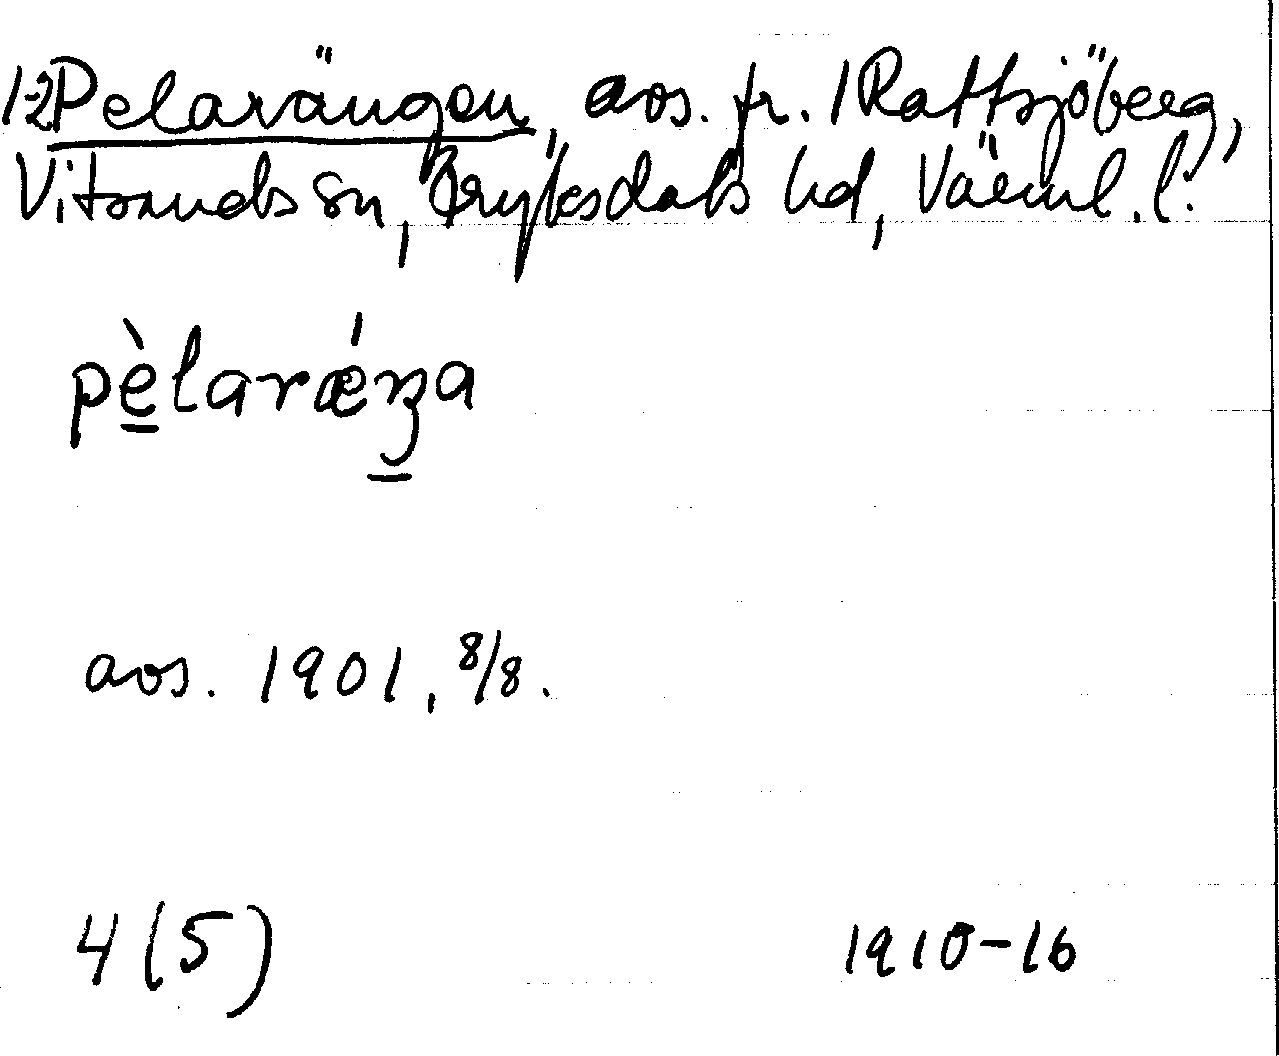 1-2 Pelarängen, avs. fr. 1 Rattsjöberg,
Vitsands sn, Fryksdals hd, Värml. l.
pèlarǽŋa
avs. 1901, 8/8.
4 (5) 1910-16